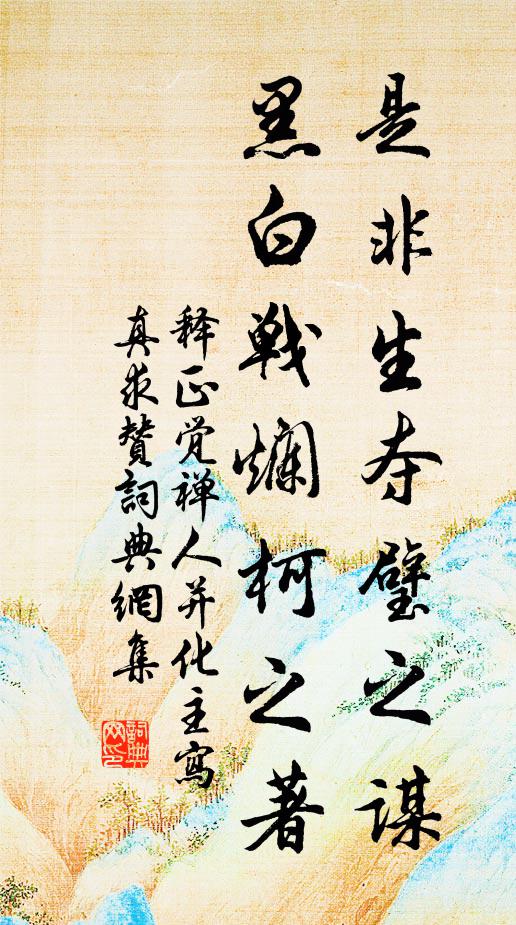 是非生夺璧之谋
黑白戦爛柯之著
释正觉禅人并化主寫
真求赞詞典網集
詞典
网印